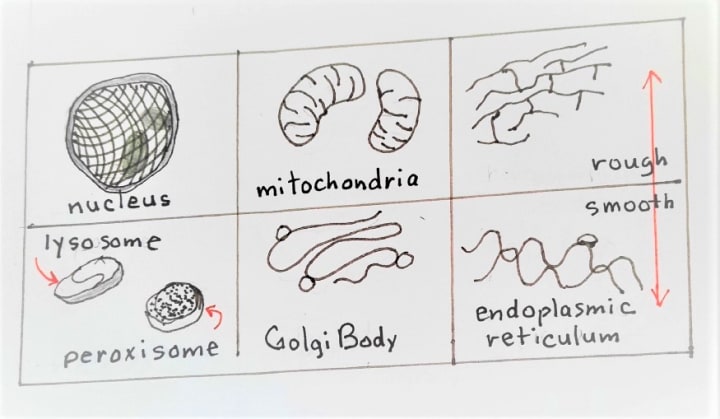 nucleus
mitochondria
rough
smooth
lysosome
peroxisome
Golgi Body
endoplasmic
reticulum